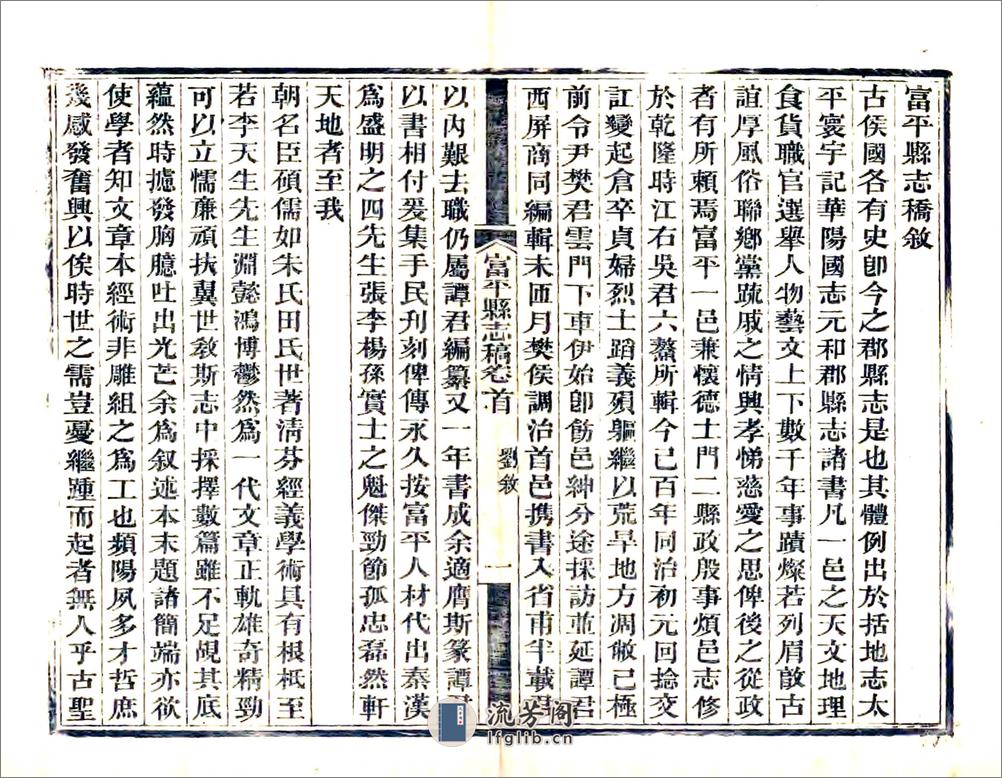 富平縣志稿敘
古侯國各有史卽今之郡縣志是也其體例出於括地志太
平寰宇記華陽國志元和郡縣志諸書凡一邑之天文地理
食貨職官選舉人物藝文上下數千年事蹟燦若列眉敳古
誼厚風俗聯鄉黨䟽戚之情興孝悌慈愛之思俾後之從政
者有所賴焉富平一邑兼懷德士門二縣政殷事煩邑志修
於乾隆時江右吳君六鰲所輯今已百年同治初元回捻交
訌變起倉卒貞婦烈士蹈義殞軀繼以荒旱地方凋敝已極
前令尹樊君雲門下車伊始卽飭邑紳分途採訪並延譚君
西屏商同編輯未匝月樊侯調治首邑携書入省甫半載
富平縣志稿卷首
劉敘
一
以內艱去職仍屬譚君編纂又一年書成余適膺斯篆譚
以書相付爰集手民刋刻俾傳永久按富平人材代出秦漢
爲盛明之四先生張李楊孫實士之魁傑勁節孤忠磊然軒
天地者至我
朝名臣碩儒如朱氏田氏世著淸芬經義學術具有根柢至
若李天生先生淵懿鴻博鬱然爲一代文章正軌雄奇精勁
可以立懦廉頑扶翼世敎斯志中採擇數篇雖不足覘其底
蘊然時攄發胸臆吐出光芒余爲叙述本末題諸簡端亦欲
使學者知文章本經術非雕組之爲工也頻陽夙多才哲庶
幾感發奮興以俟時世之需豈憂繼踵而起者無人乎古聖
流芳閣
lfglib.cn